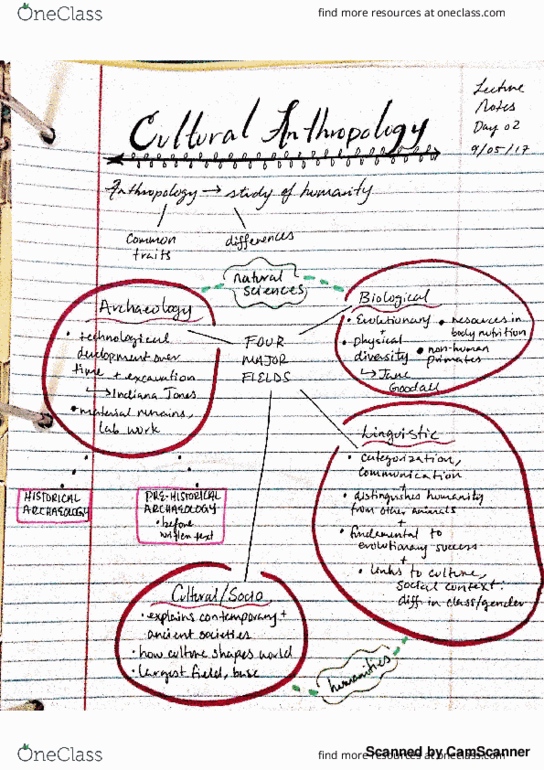 OneClass
find more resources at oneclass.com
Lecture
Notes
Day 02
9/05/17
Cultural Anthropology
Anthropology → study of humanity
Common
traits
differences
natural
sciences
Archaeology
• technological
development over
time + excavation
↳ Indiana Jones
• material remains,
lab work
HISTORICAL
ARCHAEOLOGY
PRE-HISTORICAL
ARCHAEOLOGY
• before
written text
FOUR
MAJOR
FIELDS
Biological
• Evolutionary • resources in
body nutrition
+
• physical
diversity • non-human
primates
↳ Jane
Goodall
Linguistic
• categorization,
communication
+
• distinguishes humanity
from other animals
+
• fundamental to
evolutionary success
+
• links to culture,
social context:
diff. in class/gender
Cultural/Socio
• explains contemporary +
ancient societies
• how culture shapes world
• largest field, base
humanities
OneClass
find more resources at oneclass.com
Scanned by CamScanner